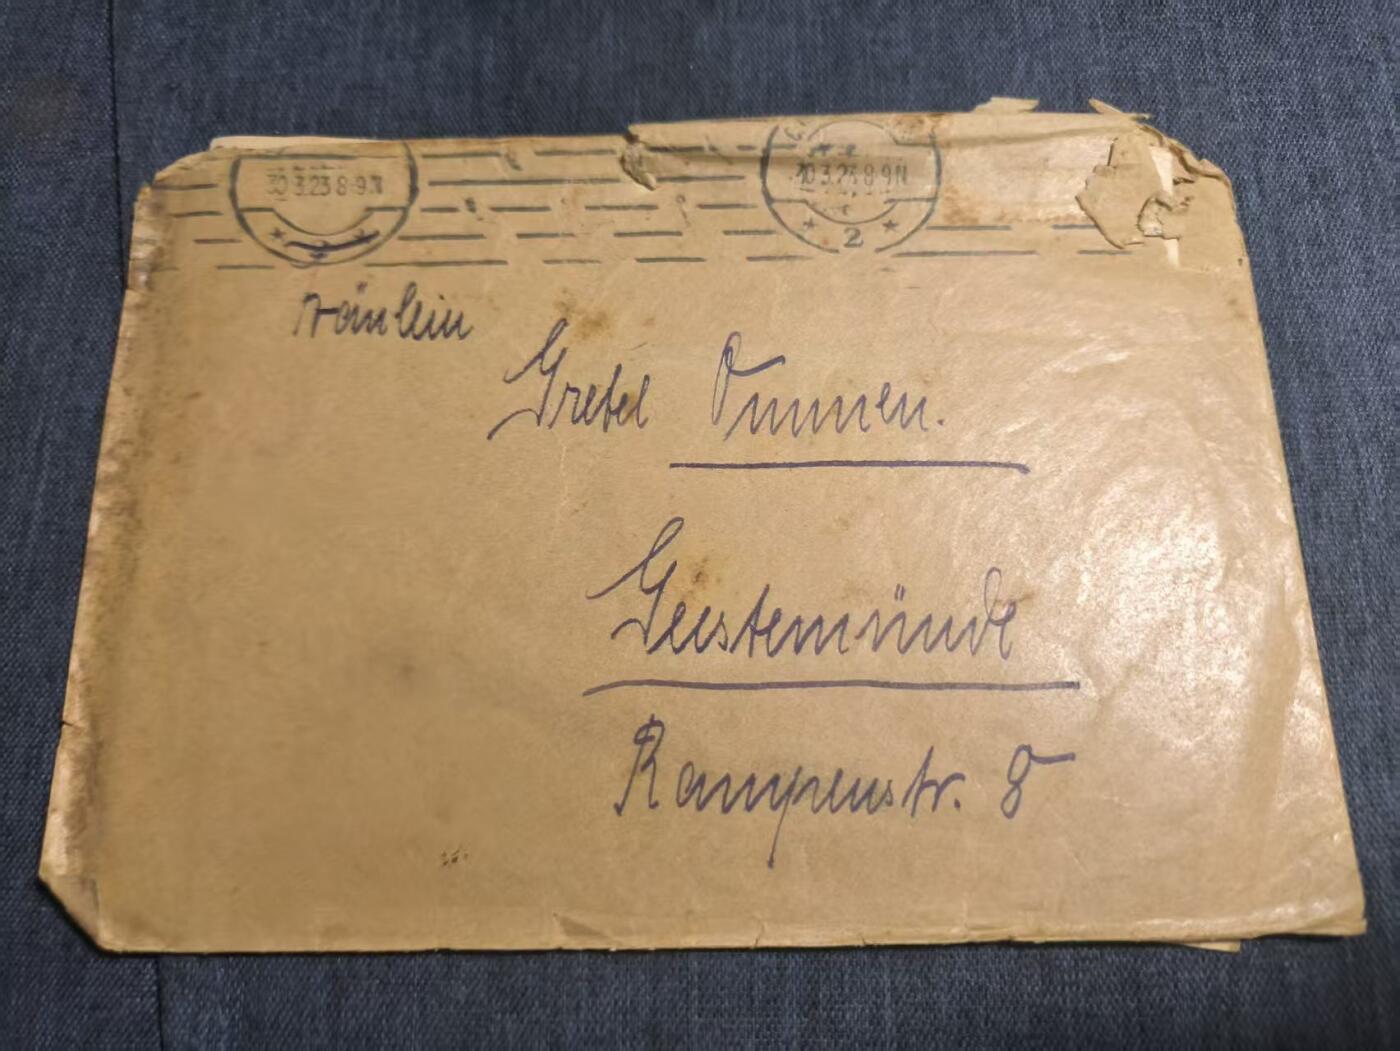 30.3.23 8-9N
30.3.23 8-9N
* 2 *
Fräulein
Gretel Ommen.
Geestemünde
Rampenstr. 8